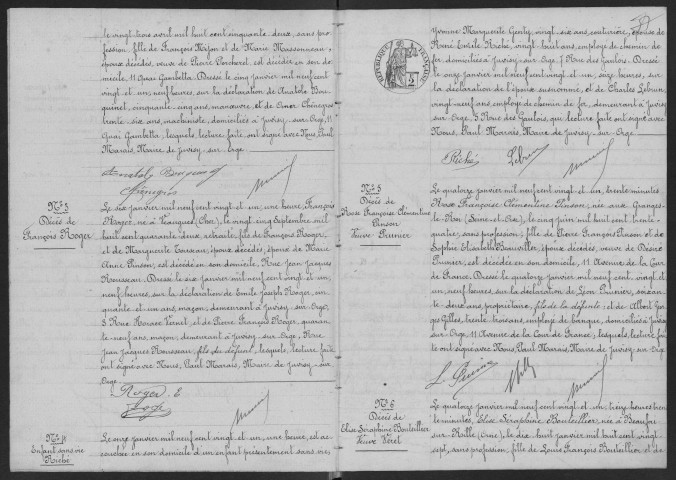 le vingt trois avril mil huit cent cinquante-deux, sans pro-
fession, fille de François Mijon et de Marie Massonneau
époux décédés, veuve de Pierre Porcheret est décédée en son do-
micile, 11 Quai Gambetta. Dressé le cinq janvier mil neuf cent
vingt et un, neuf heures, sur la déclaration de Anatole Bou-
quinet, cinquante-cinq ans, manœuvre, et de Omer Chénegros
trente-six ans, machiniste, domiciliés à Juvisy-sur-Orge, 11
Quai Gambetta, lesquels, lecture faite ont signé avec Nous, Paul
Marais, Maire de Juvisy-sur-Orge.
N° 3
Décès de
François Roger
Le six janvier mil neuf cent vingt et un, une heure, François
Roger, né à (Cher), le vingt cinq Septembre mil
huit cent quarante-deux, retraité, fils de François Roger,
et de Marguerite époux décédés, époux de Marie
Anne Pinson, est décédé en son domicile, Rue Jean Jacques
Rousseau. Dressé le six janvier mil neuf cent vingt et un,
neuf heures, sur la déclaration de Emile Joseph Roger, cin-
quante et un ans, maçon, demeurant à Juvisy-sur-Orge,
5 Rue et de Pierre François Roger, quaran-
te-neuf ans, maçon, demeurant à Juvisy-sur-Orge, Rue
Jean Jacques Rousseau, fils du défunt, lesquels, lecture faite
ont signé avec Nous, Paul Marais, Maire de Juvisy-sur-
Orge.
Roger E.
Roger
N° 4
Enfant sans vie
Riché
Le onze janvier mil neuf cent vingt et un, une heure, est ac-
couchée en son domicile d'un enfant présentement sans vie,
Yvonne Marguerite Genty, vingt-six ans, couturière, épouse de
René Emile Riché, vingt huit ans, employé de chemin de
fer, domiciliés à Juvisy-sur-Orge, 3 Rue des Gaulois. Dressé
le onze janvier mil neuf cent vingt et un, onze heures, sur
la déclaration de l'époux susnommé, et de Charles Lebrun,
vingt-neuf ans, employé de chemin de fer, demeurant à Juvisy
sur-Orge, 3 Rue des Gaulois, qui lecture faite ont signé avec
Nous, Paul Marais, Maire de Juvisy-sur-Orge.
Riché Lebrun
N° 5
Décès de
Rose Françoise Clémentine
Pinson
Veuve Prunier
Le quatorze janvier mil neuf cent vingt et un, trente minutes,
Rose Françoise Clémentine Pinson, née aux Granges-
le-Roi (Seine-et-Oise), le cinq juin mil huit cent trente-
quatre, sans profession, fille de Pierre François Pinson et de
Sophie Elisabeth époux décédés, veuve de Désiré
Prunier, est décédée en son domicile, 11 Avenue de la Cour
de France. Dressé le quatorze janvier mil neuf cent vingt et
un, neuf heures, sur la déclaration de Léon Prunier, soixan-
te-deux ans, propriétaire, fils de la défunte, et de Albert Geor-
ges Gilles, trente trois ans, employé de banque, domiciliés à Juvisy
sur-Orge, 11 Avenue de la Cour de France, lesquels, lecture faite
ont signé avec Nous, Paul Marais, Maire de Juvisy-sur-Orge.
N° 6
Décès de
Elise Séraphine Bouteillier
Veuve Véret
Le quatorze janvier mil neuf cent vingt et un, treize heures tren-
te minutes, Elise Séraphine Bouteillier, née à Beaufai
sur-Rille (Orne), le dix huit janvier mil huit cent vingt
sept, sans profession, fille de Louis François Bouteillier et de